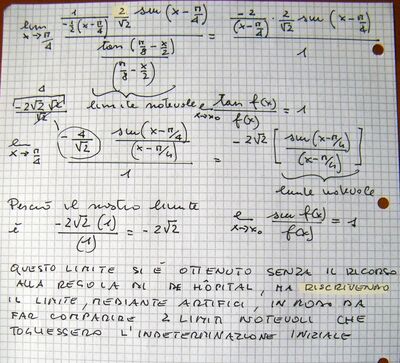 lim x→π/4 [ 1/(-1/2 (x-π/4)) · 2/√2 sin(x-π/4) ] / [ tan(π/8 - x/2) / (π/8 - x/2) ] = [ -2/(x-π/4) · 2/√2 sin(x-π/4) ] / 1
limite notevole lim x→x₀ tan f(x)/f(x) = 1
lim x→π/4 [ -4/√2 · sin(x-π/4)/(x-π/4) ] / 1 = -2√2 [ sin(x-π/4)/(x-π/4) ]
limite notevole
Perciò il nostro limite
è -2√2 (1)/(1) = -2√2
lim x→x₀ sin f(x)/f(x) = 1
QUESTO LIMITE SI È OTTENUTO SENZA IL RICORSO
ALLA REGOLA DI DE HÔPITAL, MA RISCRIVENDO
IL LIMITE, MEDIANTE ARTIFICI, IN MODO DA
FAR COMPARIRE 2 LIMITI NOTEVOLI CHE
TOGLIESSERO L'INDETERMINAZIONE INIZIALE